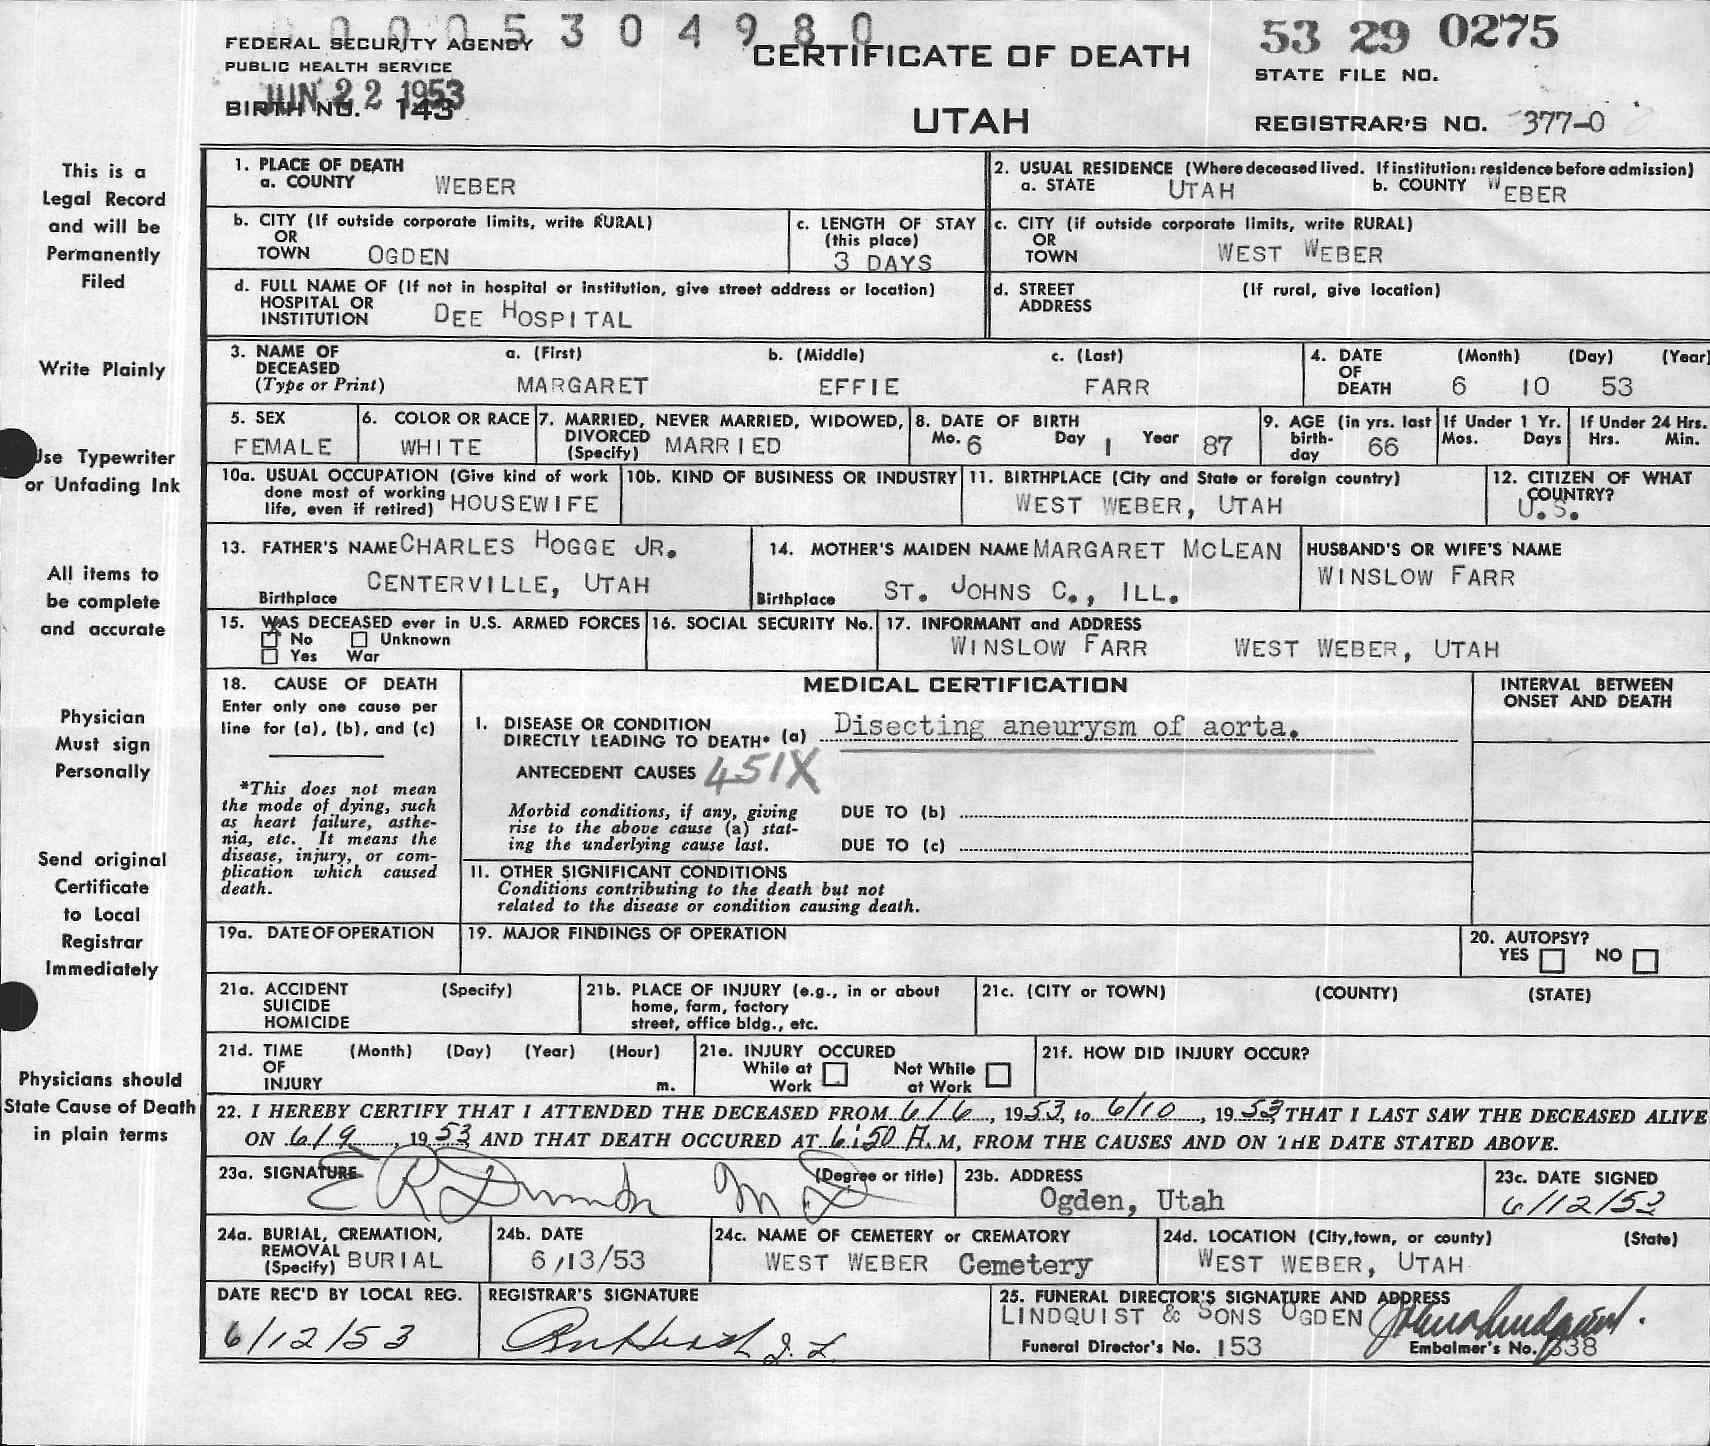 0005304980
FEDERAL SECURITY AGENCY
PUBLIC HEALTH SERVICE
JUN 22 1953
BIRTH NO. 143
CERTIFICATE OF DEATH
UTAH
53 29 0275
STATE FILE NO.
REGISTRAR'S NO. 377-0
This is a
Legal Record
and will be
Permanently
Filed
Write Plainly
Use Typewriter
or Unfading Ink
All items to
be complete
and accurate
Physician
Must sign
Personally
Send original
Certificate
to Local
Registrar
Immediately
Physicians should
State Cause of Death
in plain terms
1. PLACE OF DEATH
a. COUNTY WEBER
2. USUAL RESIDENCE (Where deceased lived. If institution: residence before admission)
a. STATE UTAH b. COUNTY WEBER
b. CITY (If outside corporate limits, write RURAL)
OR
TOWN OGDEN
c. LENGTH OF STAY
(this place)
3 DAYS
c. CITY (if outside corporate limits, write RURAL)
OR
TOWN WEST WEBER
d. FULL NAME OF (If not in hospital or institution, give street address or location)
HOSPITAL OR
INSTITUTION DEE HOSPITAL
d. STREET (If rural, give location)
ADDRESS
3. NAME OF DECEASED (Type or Print)
a. (First) b. (Middle) c. (Last)
MARGARET EFFIE FARR
4. DATE OF DEATH (Month) (Day) (Year)
6 10 53
5. SEX
FEMALE
6. COLOR OR RACE
WHITE
7. MARRIED, NEVER MARRIED, WIDOWED,
DIVORCED
(Specify) MARRIED
8. DATE OF BIRTH
Mo. 6 Day 1 Year 87
9. AGE (in yrs. last
birth-
day 66
If Under 1 Yr.
Mos. Days
If Under 24 Hrs.
Hrs. Min.
10a. USUAL OCCUPATION (Give kind of work
done most of working
life, even if retired) HOUSEWIFE
10b. KIND OF BUSINESS OR INDUSTRY
11. BIRTHPLACE (City and State or foreign country)
WEST WEBER, UTAH
12. CITIZEN OF WHAT
COUNTRY?
U.S.
13. FATHER'S NAME CHARLES HOGGE JR.
Birthplace CENTERVILLE, UTAH
14. MOTHER'S MAIDEN NAME MARGARET MCLEAN
Birthplace ST. JOHNS C., ILL.
HUSBAND'S OR WIFE'S NAME
WINSLOW FARR
15. WAS DECEASED ever in U.S. ARMED FORCES
No Unknown
Yes War
16. SOCIAL SECURITY No.
17. INFORMANT and ADDRESS
WINSLOW FARR WEST WEBER, UTAH
18. CAUSE OF DEATH
Enter only one cause per
line for (a), (b), and (c)
*This does not mean
the mode of dying, such
as heart failure, asthe-
nia, etc. It means the
disease, injury, or com-
plication which caused
death.
MEDICAL CERTIFICATION
I. DISEASE OR CONDITION
DIRECTLY LEADING TO DEATH* (a) Disecting aneurysm of aorta.
ANTECEDENT CAUSES 451X
Morbid conditions, if any, giving
rise to the above cause (a) stat-
ing the underlying cause last.
DUE TO (b)
DUE TO (c)
II. OTHER SIGNIFICANT CONDITIONS
Conditions contributing to the death but not
related to the disease or condition causing death.
INTERVAL BETWEEN
ONSET AND DEATH
19a. DATE OF OPERATION
19. MAJOR FINDINGS OF OPERATION
20. AUTOPSY?
YES NO
21a. ACCIDENT (Specify)
SUICIDE
HOMICIDE
21b. PLACE OF INJURY (e.g., in or about
home, farm, factory
street, office bldg., etc.
21c. (CITY or TOWN) (COUNTY) (STATE)
21d. TIME (Month) (Day) (Year) (Hour)
OF
INJURY m.
21e. INJURY OCCURED
While at Not While
Work at Work
21f. HOW DID INJURY OCCUR?
22. I HEREBY CERTIFY THAT I ATTENDED THE DECEASED FROM 6/6, 1953, to 6/10, 1953, THAT I LAST SAW THE DECEASED ALIVE
ON 6/9, 1953 AND THAT DEATH OCCURED AT 6:50 A.M, FROM THE CAUSES AND ON THE DATE STATED ABOVE.
23a. SIGNATURE (Degree or title)
E R M D
23b. ADDRESS
Ogden, Utah
23c. DATE SIGNED
6/12/53
24a. BURIAL, CREMATION,
REMOVAL
(Specify) BURIAL
24b. DATE
6/13/53
24c. NAME OF CEMETERY or CREMATORY
WEST WEBER Cemetery
24d. LOCATION (City, town, or county) (State)
WEST WEBER, UTAH
DATE REC'D BY LOCAL REG.
6/12/53
REGISTRAR'S SIGNATURE
25. FUNERAL DIRECTOR'S SIGNATURE AND ADDRESS
LINDQUIST & SONS OGDEN
Funeral Director's No. 153
Embalmer's No. 338